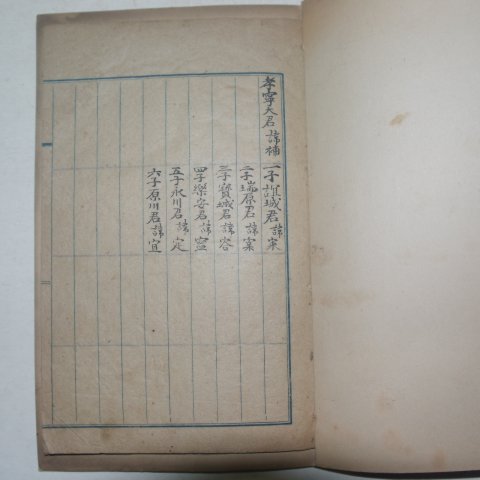 孝寧大君 諱補
一子誼城君 諱寀
二子瑞原君 諱寀
三子寶城君 諱㝓
四子樂安君 諱寍
五子永川君 諱定
六子原川君 諱宜